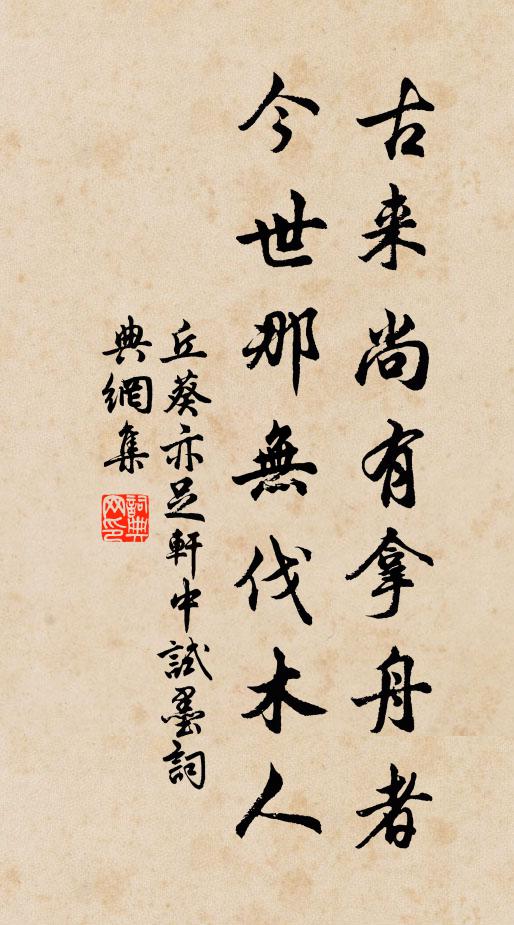 古来尚有拿舟者
今世那無伐木人
丘葵亦足軒中試墨詞
典網集
詞典網印